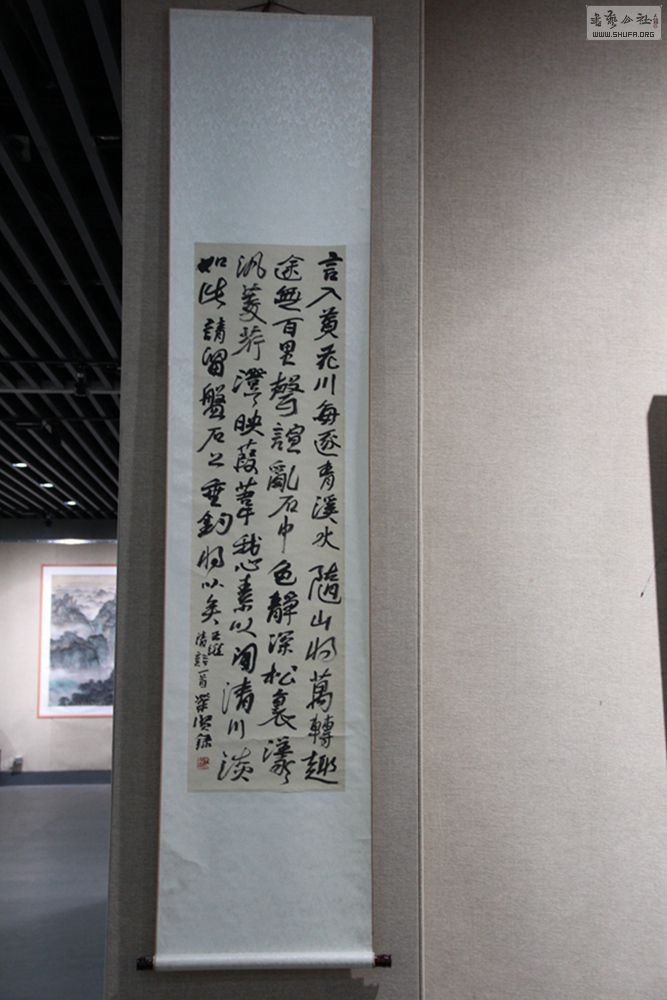 言入黃花川每逐青溪水隨山将萬轉趣
途無百里聲諠亂石中色靜深松裏漾々
汎菱荇澄々映葭葦我心素以閒清川淡
如此請留盤石上垂釣将以矣王維
清谿一首
书艺公社
WWW.SHUFA.ORG